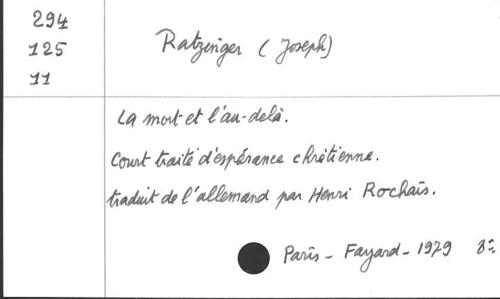 294
125
11
Ratzinger (Joseph)
La mort et l'au-delà.
Court traité d'espérance chrétienne.
traduit de l'allemand par Henri Rochais.
Paris - Fayard - 1979 8°